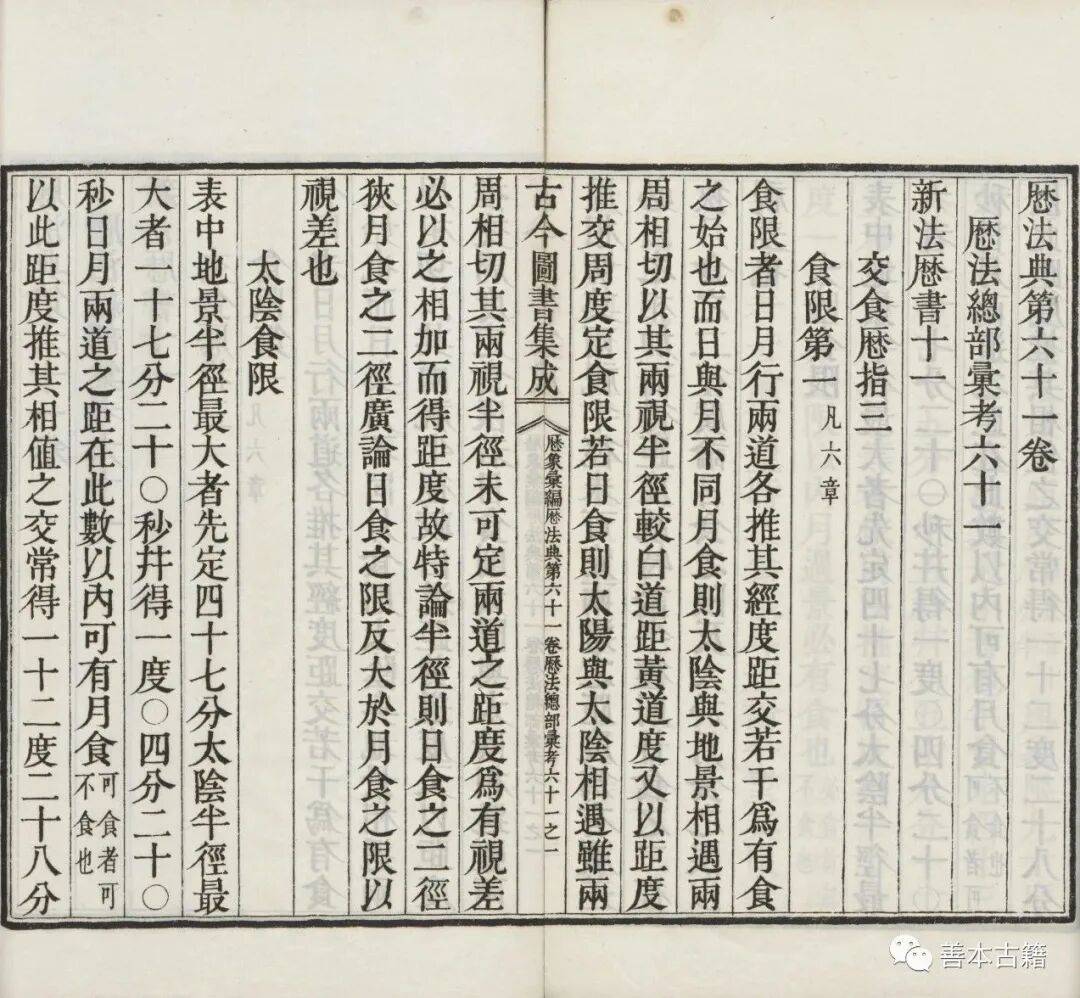 曆法典第六十一卷
曆法總部彙考六十一
新法曆書十一
交食曆指三
食限第一 凡六章
食限者日月行兩道各推其經度距交若干爲有食
之始也而日與月不同月食則太陰與地景相遇兩
周相切以其兩視半徑較白道距黃道度又以距度
推交周度定食限若日食則太陽與太陰相遇雖兩
古今圖書集成 曆象彙編曆法典第六十一卷曆法總部彙考六十一之一
周相切其兩視半徑未可定兩道之距度爲有視差
必以之相加而得距度故特論半徑則日食之二徑
狹月食之二徑廣論日食之限反大於月食之限以
視差也
太陰食限
表中地景半徑最大者先定四十七分太陰半徑最
大者一十七分二十〇秒幷得一度〇四分二十〇
秒日月兩道之距在此數以內可有月食 可食者可不食也
以此距度推其相値之交常得一十二度二十八分
善本古籍